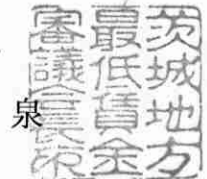 泉
茨城地方
最低賃金
審議会長印